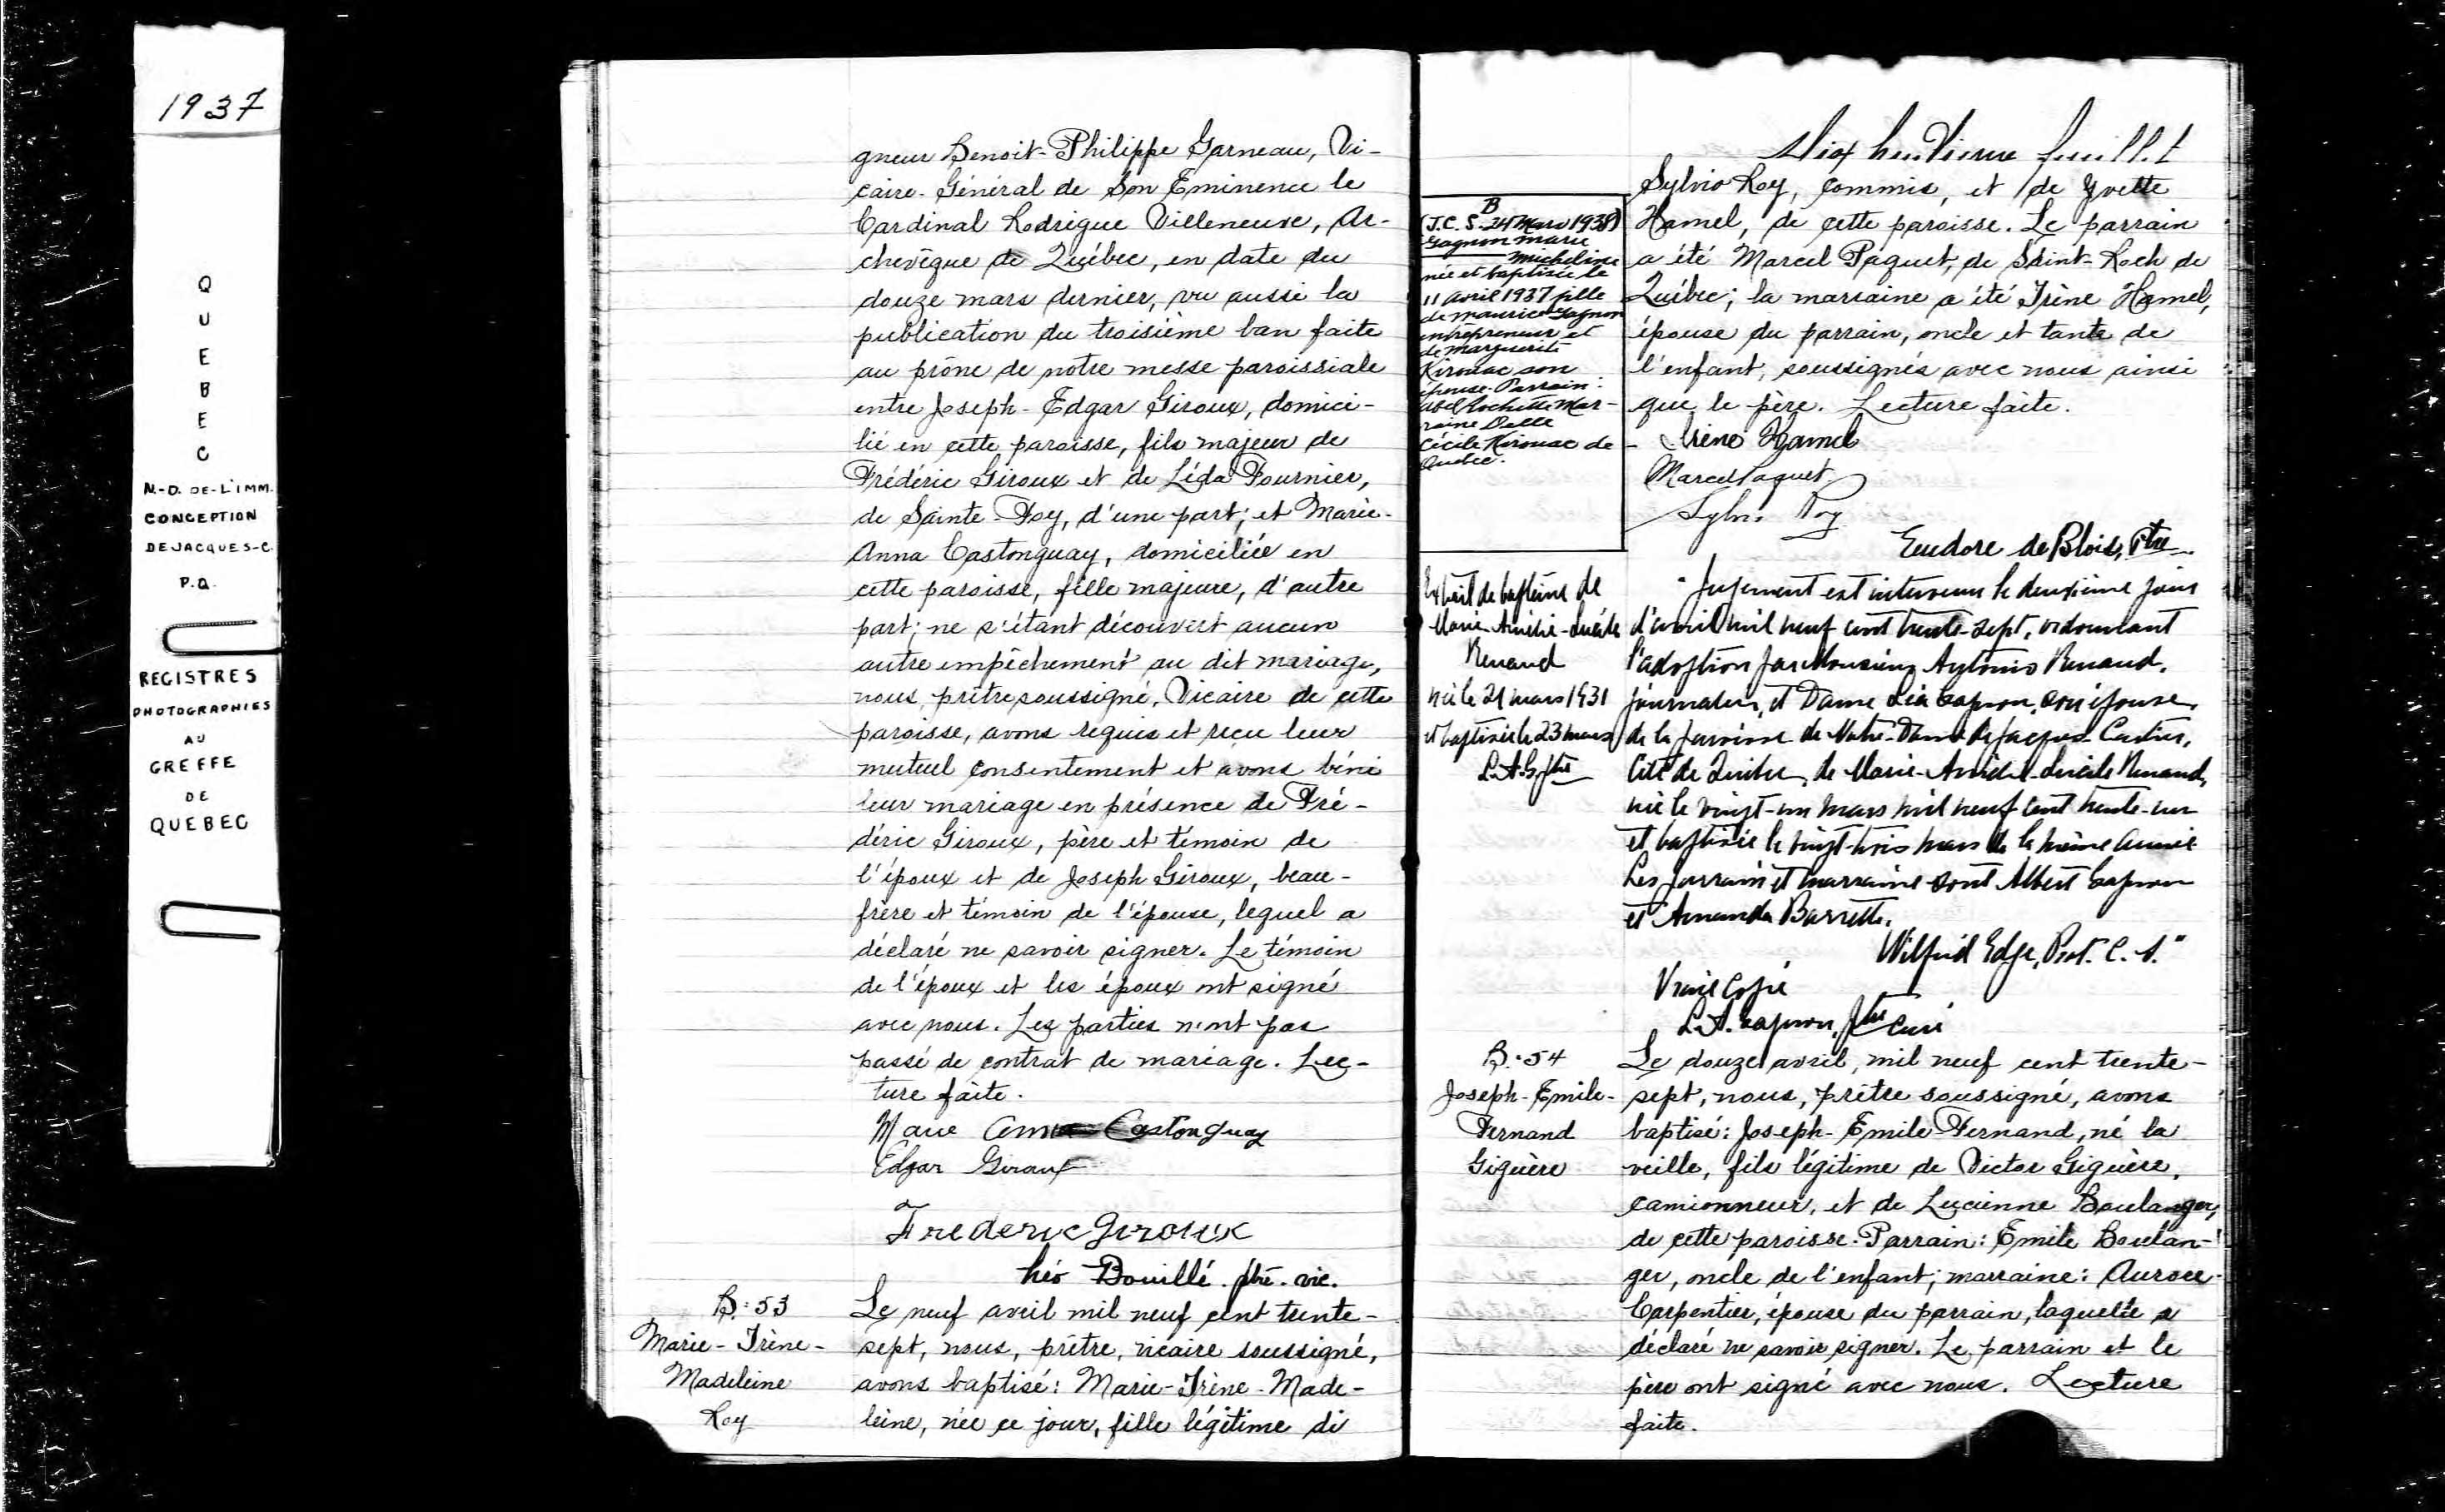 1937
Q
U
E
B
E
C
N.-D. DE-L'IMM.
CONCEPTION
DE JACQUES-C.
P.Q.
REGISTRES
PHOTOGRAPHIES
AU
GREFFE
DE
QUEBEC
gneur Benoit-Philippe Garneau, Vi-
caire-Général de Son Eminence le
Cardinal Rodrigue Villeneuve, Ar-
chevêque de Québec, en date du
douze mars dernier, vu aussi la
publication du troisième ban faite
au prône de notre messe paroissiale
entre Joseph-Edgar Giroux, domici-
lié en cette paroisse, fils majeur de
Frédéric Giroux et de Léda Fournier,
de Sainte-Foy, d'une part; et Marie-
Anna Castonguay, domiciliée en
cette paroisse, fille majeure, d'autre
part; ne s'étant découvert aucun
autre empêchement au dit mariage,
nous, prêtre soussigné, Vicaire de cette
paroisse, avons requis et reçu leur
mutuel consentement et avons béni
leur mariage en présence de Fré-
déric Giroux, père et témoin de
l'époux et de Joseph Giroux, beau-
frère et témoin de l'épouse, lequel a
déclaré ne savoir signer. Le témoin
de l'époux et les époux ont signé
avec nous. Les parties n'ont pas
passé de contrat de mariage. Lec-
ture faite.
Marie Anna Castonguay
Edgar Giroux
Frederic Giroux
Théo Bouillé. ptre. vic.
B.:53
Marie-Irène-
Madeleine
Roy
Le neuf avril mil neuf cent trente-
sept, nous, prêtre, vicaire soussigné,
avons baptisé: Marie-Irène-Made-
leine, née ce jour, fille légitime de
Dix huitième feuillet
Sylvio Roy, commis, et de Yvette
Hamel, de cette paroisse. Le parrain
a été Marcel Paquet, de Saint-Roch de
Québec; la marraine a été Irène Hamel,
épouse du parrain, oncle et tante de
l'enfant, soussignés avec nous ainsi
que le père. Lecture faite.
Irène Hamel
Marcel Paquet
Sylvio Roy
Eudore de Blois, Ptre
B
(J.C.S. 24 Mars 1938)
Gagnon Marie
Micheline
née et baptisée le
11 avril 1937 fille
de Maurice Gagnon
entrepreneur et
de Marguerite
Kirouac son
épouse. Parrain:
Abel Rochette Mar-
raine Delle
Cécile Kirouac de
Québec.
Extrait de baptême de
Marie Amélie-Lucile
Renaud
née le 21 mars 1931
et baptisée le 23 mars
L.A.G. ptre
"Jugement est intervenu le deuxième jour
d'avril mil neuf cent trente-sept, ordonnant
l'adoption par Monsieur Renaud,
journalier, et Dame Léa Gagnon, son épouse,
de la paroisse de Notre-Dame de Jacques-Cartier,
Cité de Québec, de Marie-Amélie-Lucile Renaud,
née le vingt-un mars mil neuf cent trente-un
et baptisée le vingt-trois mars de la même année
Les parrain et marraine sont Albert Gagnon
et Amanda Barrette.
Wilfrid Edge, Prot. C.S."
Vraie Copie
L.A. Gagnon, ptre curé
B.:54
Joseph-Emile-
Fernand
Giguère
Le douze avril, mil neuf cent trente-
sept, nous, prêtre soussigné, avons
baptisé: Joseph-Emile Fernand, né la
veille, fils légitime de Victor Giguère,
camionneur, et de Lucienne Boulanger,
de cette paroisse. Parrain: Emile Boulan-
ger, oncle de l'enfant; marraine: Aurore
Carpentier, épouse du parrain, laquelle a
déclaré ne savoir signer. Le parrain et le
père ont signé avec nous. Lecture
faite.